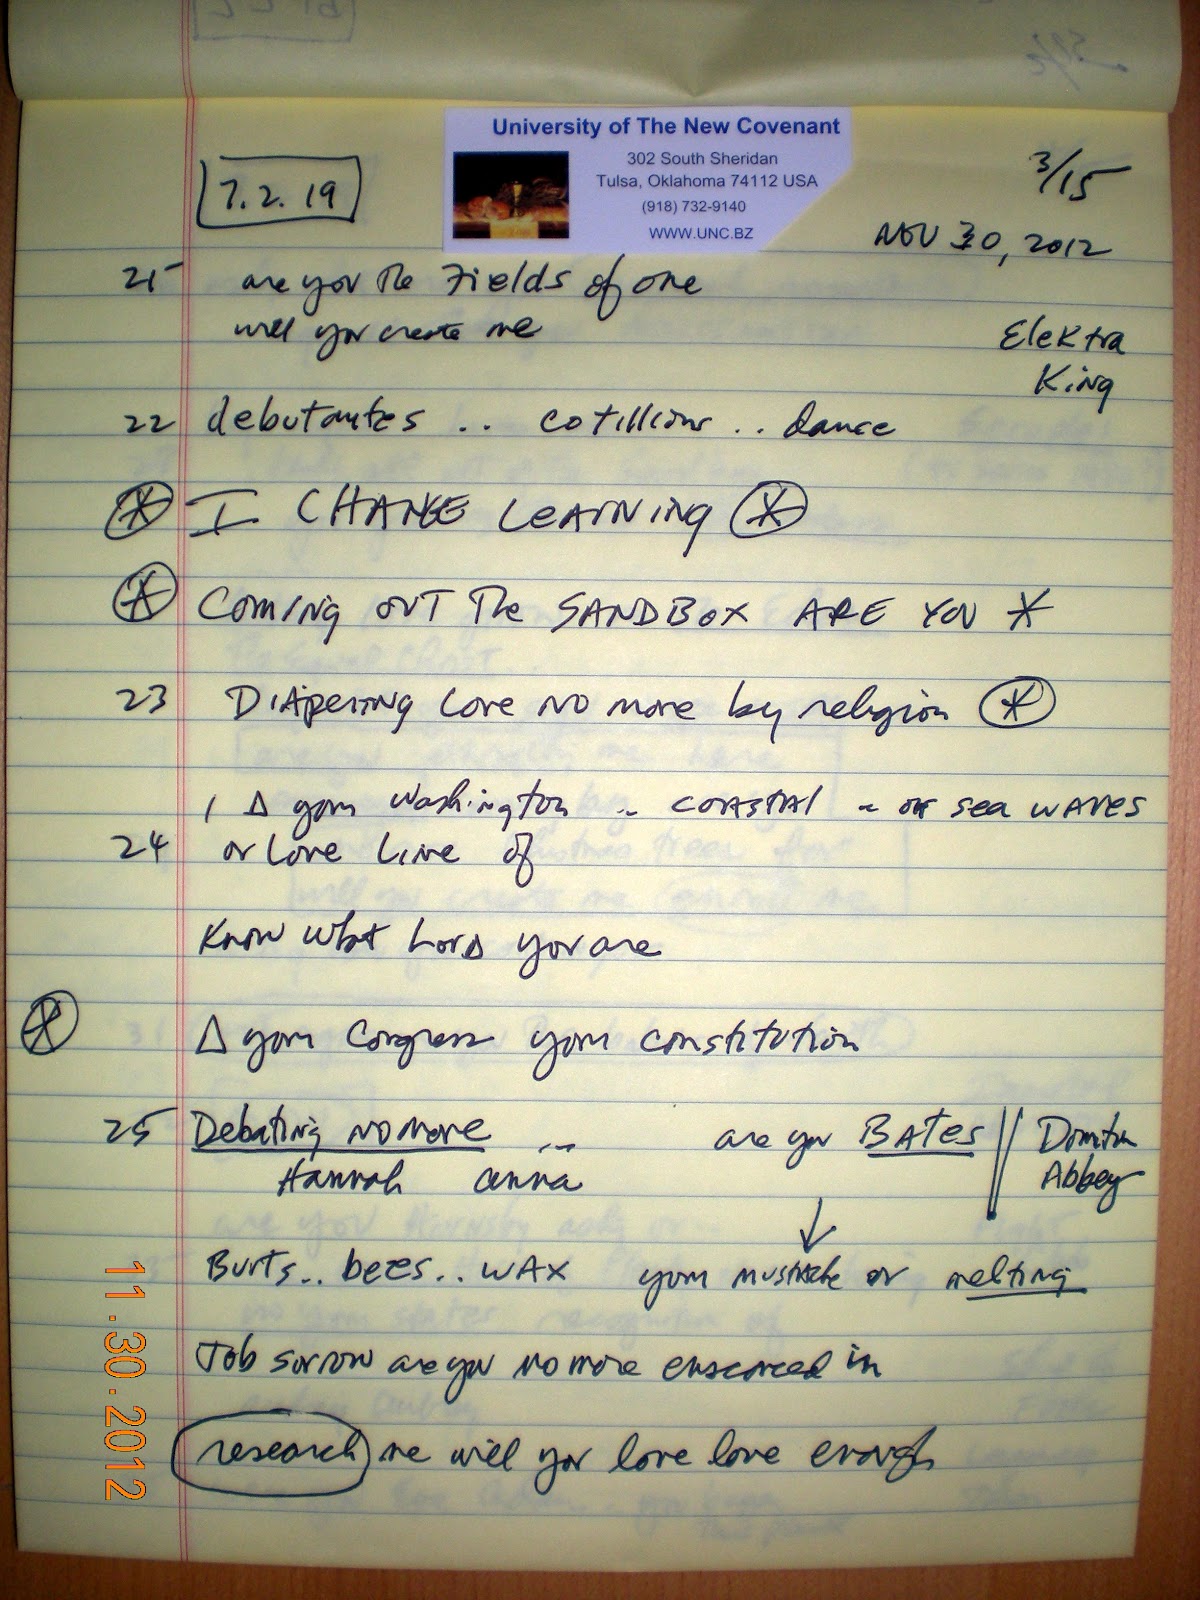 University of The New Covenant
302 South Sheridan
Tulsa, Oklahoma 74112 USA
(918) 732-9140
WWW.UNC.BZ
7.2.19
3/15
NOV 30, 2012
21 are you the Fields of one
will you create me
Elektra
King
22 debutantes .. cotillions .. dance
* I CHANGE LEARNING *
* COMING OUT The SANDBOX ARE YOU *
23 DIApering Love NO more by religion *
1 Δ your Washington .. COASTAL ~ or sea waves
24 or Love Line of
Know what Lord you are
* Δ your Congress your constitution
25 Debating no more .. are you BATES Donton
Hannah anna Abbey
Burts .. bees .. WAX your mustache or melting
Job sorrow are you no more ensconced in
research me will you love love enough
11.30.2012